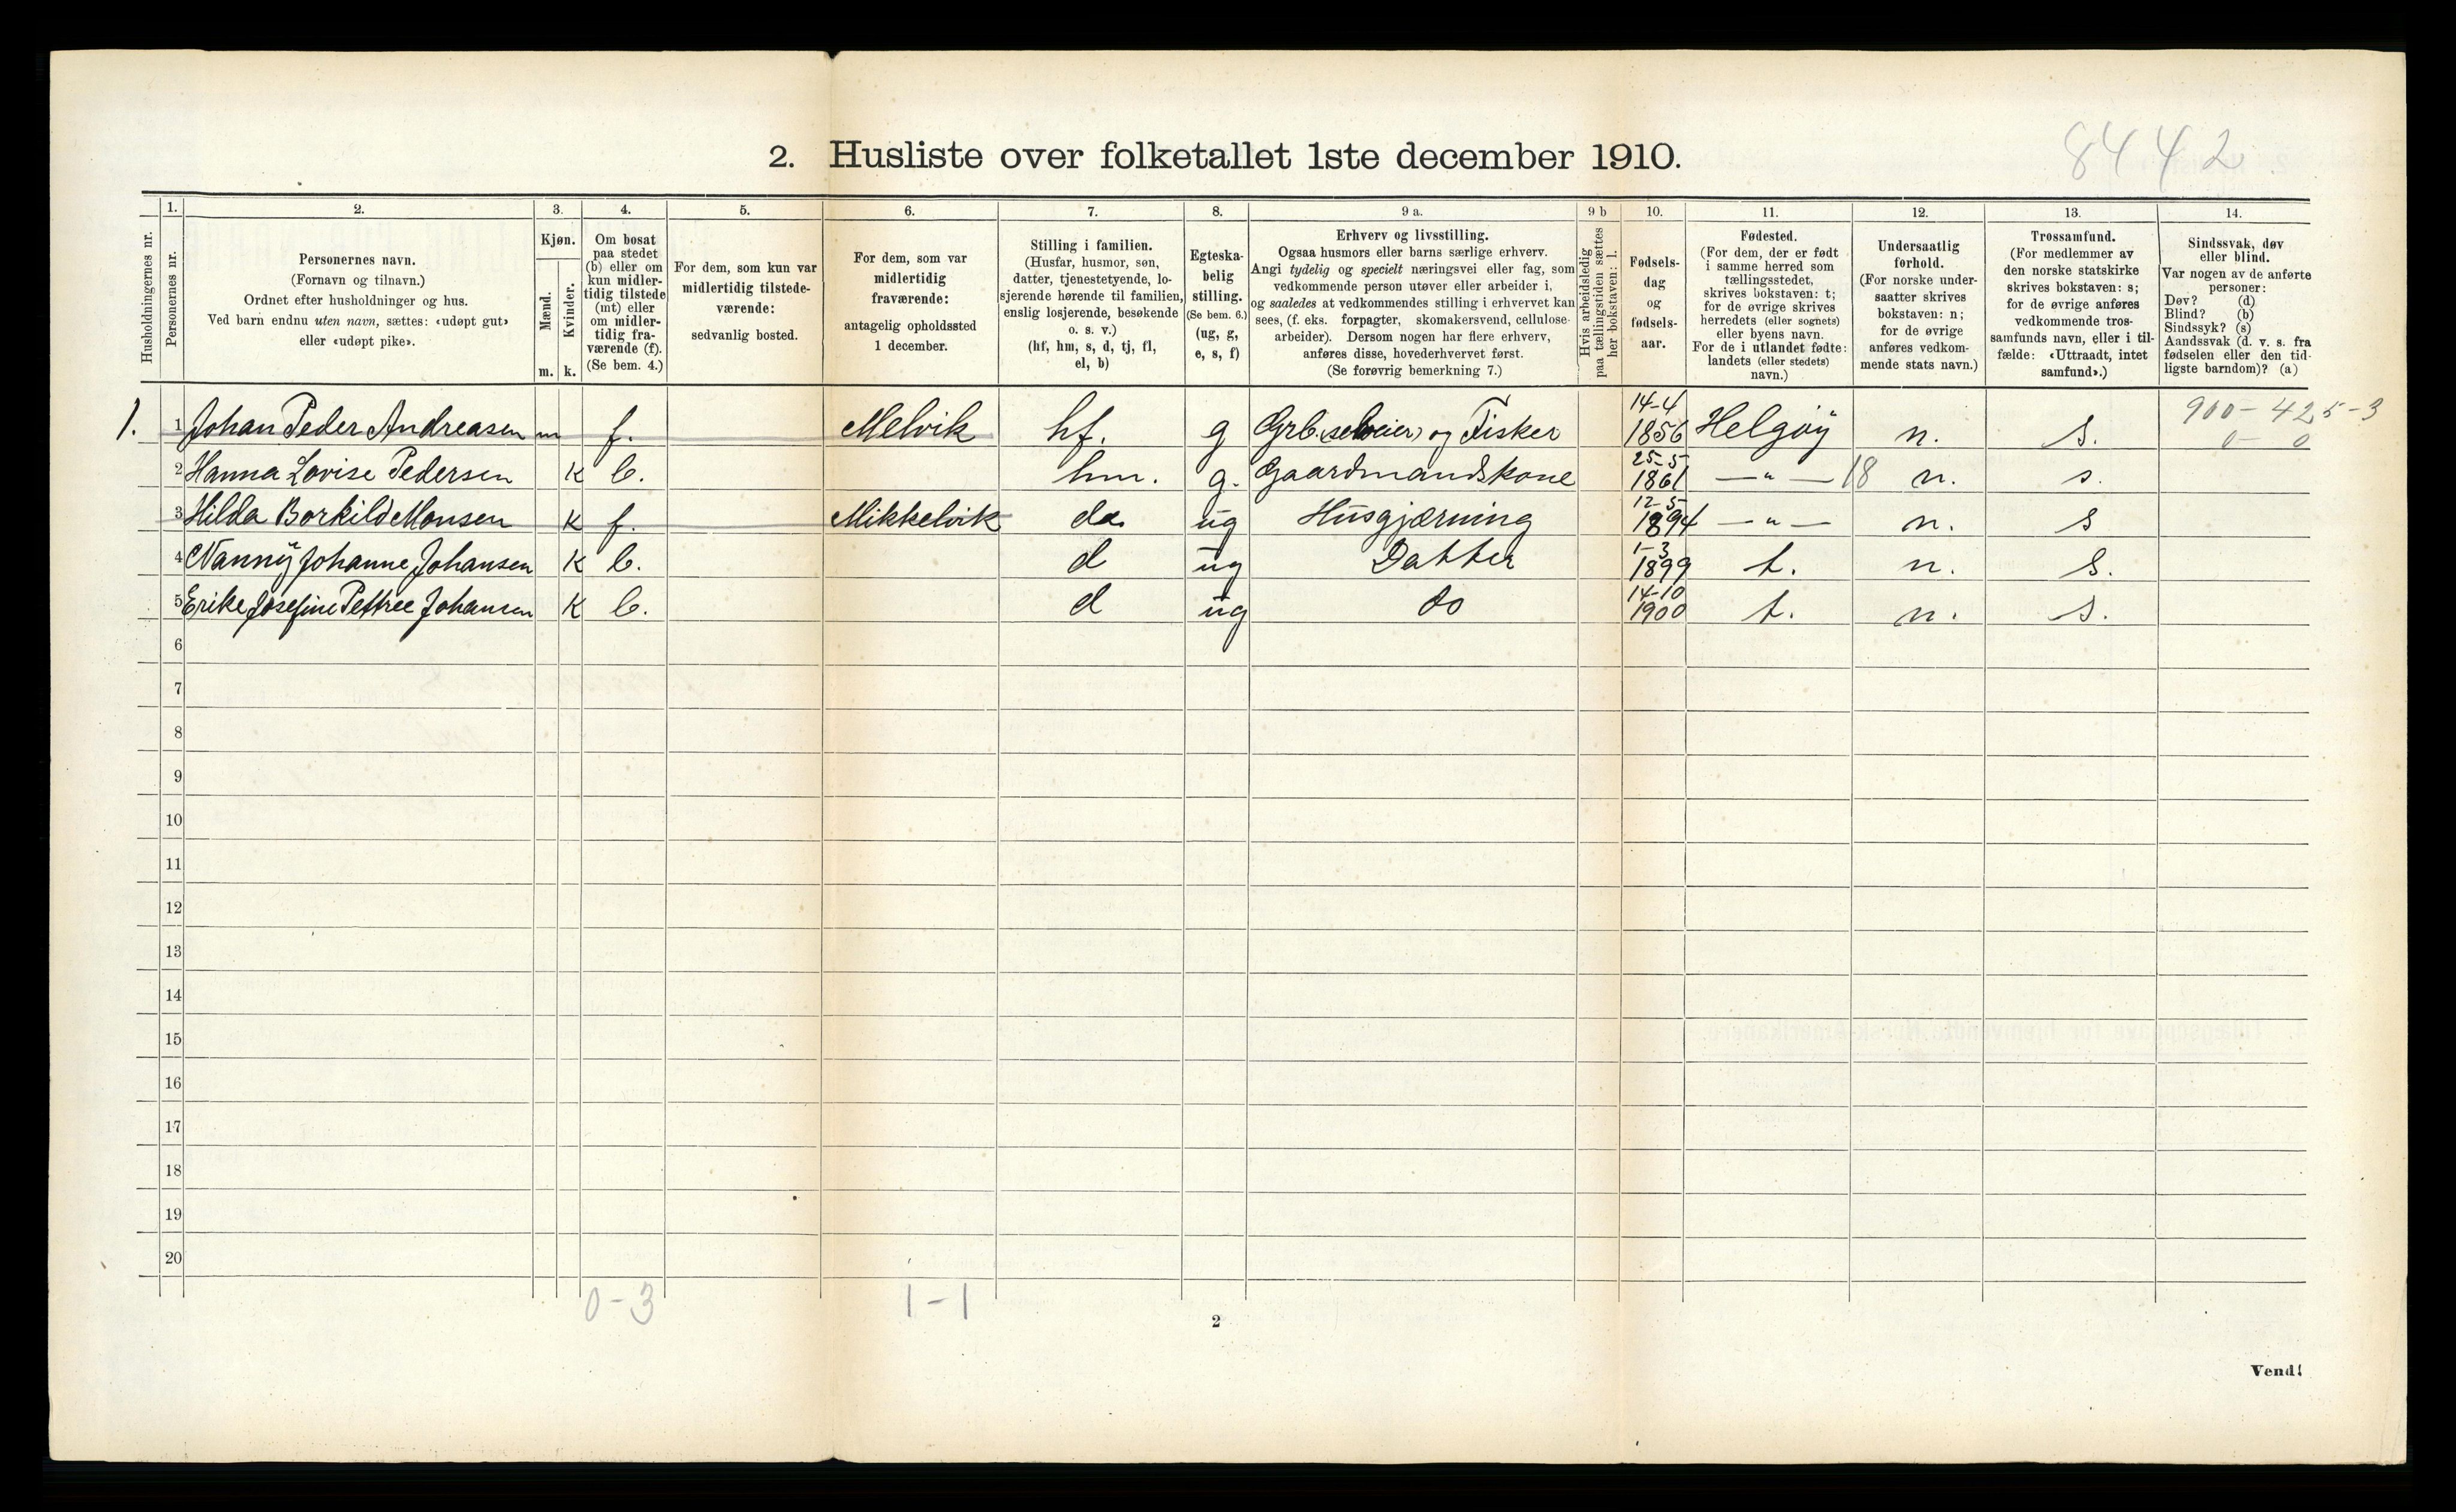 8442
2. Husliste over folketallet 1ste december 1910.
Husholdningernes nr.
1.
Personernes nr.
2.
Personernes navn.
(Fornavn og tilnavn.)
Ordnet efter husholdninger og hus.
Ved barn endnu uten navn, sættes: «udøpt gut»
eller «udøpt pike».
3.
Kjøn.
Mænd.
Kvinder.
m. k.
4.
Om bosat
paa stedet
(b) eller om
kun midler-
tidig tilstede
(mt) eller
om midler-
tidig fra-
værende (f).
(Se bem. 4.)
5.
For dem, som kun var
midlertidig tilstede-
værende:
sedvanlig bosted.
6.
For dem, som var
midlertidig
fraværende:
antagelig opholdssted
1 december.
7.
Stilling i familien.
(Husfar, husmor, søn,
datter, tjenestetyende, lo-
sjerende hørende til familien,
enslig losjerende, besøkende
o. s. v.)
(hf, hm, s, d, tj, fl,
el, b)
8.
Egteska-
belig
stilling.
(Se bem. 6.)
(ug, g,
e, s, f)
9 a.
Erhverv og livsstilling.
Ogsaa husmors eller barns særlige erhverv.
Angi tydelig og specielt næringsvei eller fag, som
vedkommende person utøver eller arbeider i,
og saaledes at vedkommendes stilling i erhvervet kan
sees, (f. eks. forpagter, skomakersvend, cellulose-
arbeider). Dersom nogen har flere erhverv,
anføres disse, hovederhvervet først.
(Se forøvrig bemerkning 7.)
9 b
Hvis arbeidsledig
paa tællingstiden sættes
her bokstaven: l.
10.
Fødsels-
dag
og
fødsels-
aar.
11.
Fødested.
(For dem, der er født
i samme herred som
tællingsstedet,
skrives bokstaven: t;
for de øvrige skrives
herredets (eller sognets)
eller byens navn.
For de i utlandet fødte:
landets (eller stedets)
navn.)
12.
Undersaatlig
forhold.
(For norske under-
saatter skrives
bokstaven: n;
for de øvrige
anføres vedkom-
mende stats navn.)
13.
Trossamfund.
(For medlemmer av
den norske statskirke
skrives bokstaven: s;
for de øvrige anføres
vedkommende tros-
samfunds navn, eller i til-
fælde: «Uttraadt, intet
samfund».)
14.
Sindssvak, døv
eller blind.
Var nogen av de anførte
personer:
Døv? (d)
Blind? (b)
Sindssyk? (s)
Aandssvak (d. v. s. fra
fødselen eller den tid-
ligste barndom)? (a)
1. 1 Johan Peder Andreasen m f. Melvik hf. g Grb. (selveier) og Fisker 14-4 1856 Helgøy n. s. 900-425-3
0-0
2 Hanna Lovise Pedersen k b. hm. g. Gaardmandskone 25-5 1861 —"— 18 n. s.
3 Hilda Borkild Monsen k f. Mikkelvik d ug Husgjærning 12-5 1894 —"— n. s
4 Nanny Johanne Johansen k b. d ug Datter 1-3 1899 t. n. s.
5 Erike Josefine Pettree Johansen k b. d ug do 14-10 1900 t. n. s.
6
7
8
9
10
11
12
13
14
15
16
17
18
19
20
0-3 1-1
2
Vend!